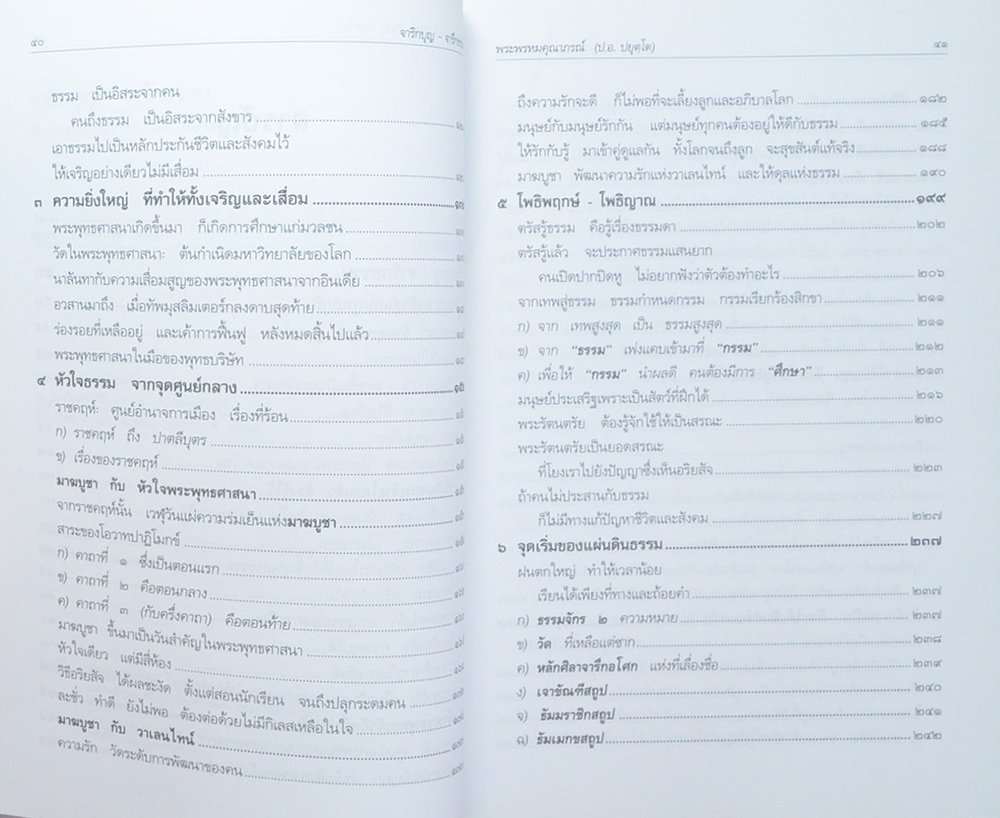 ๔๐
จาริกบุญ - จารึก
ธรรม เป็นอิสระจากคน
คนถึงธรรม เป็นอิสระจากสังขาร
เอาธรรมไปเป็นหลักประกันชีวิตและสังคมไว้
ให้เจริญอย่างเดียวไม่มีเสื่อม
๓ ความยิ่งใหญ่ ที่ทำให้ทั้งเจริญและเสื่อม
พระพุทธศาสนาเกิดขึ้นมา ก็เกิดการศึกษาแก่มวลชน
วัดในพระพุทธศาสนา: ต้นกำเนิดมหาวิทยาลัยของโลก
นาลันทากับความเสื่อมสูญของพระพุทธศาสนาจากอินเดีย
อวสานมาถึง เมื่อทัพมุสลิมเตอร์กลงดาบสุดท้าย
ร่องรอยที่เหลืออยู่ และเค้าการฟื้นฟู หลังหมดสิ้นไปแล้ว
พระพุทธศาสนาในมือของพุทธบริษัท
๔ หัวใจธรรม จากจุดศูนย์กลาง
ราชคฤห์: ศูนย์อำนาจการเมือง เรื่องที่ร้อน
ก) ราชคฤห์ ถึง ปาตลีบุตร
ข) เรื่องของราชคฤห์
มาฆบูชา กับ หัวใจพระพุทธศาสนา
จากราชคฤห์นั้น เวฬุวันแผ่ความร่มเย็นแห่งมาฆบูชา
สาระของโอวาทปาฏิโมกข์
ก) คาถาที่ ๑ ซึ่งเป็นตอนแรก
ข) คาถาที่ ๒ คือตอนกลาง
ค) คาถาที่ ๓ (กับครึ่งคาถา) คือตอนท้าย
มาฆบูชา ขึ้นมาเป็นวันสำคัญในพระพุทธศาสนา
หัวใจเดียว แต่มีสี่ห้อง
วิธีอริยสัจ ได้ผลชะงัด ตั้งแต่สอนนักเรียน จนถึงปลุกระดมคน
ละชั่ว ทำดี ยังไม่พอ ต้องต่อด้วยไม่มีกิเลสเหลือในใจ
มาฆบูชา กับ วาเลนไทน์
ความรัก วัดระดับการพัฒนาของคน
พระพรหมคุณาภรณ์ (ป.อ. ปยุตฺโต) ๔๑
ถึงความรักจะดี ก็ไม่พอที่จะเลี้ยงลูกและอภิบาลโลก ๑๘๒
มนุษย์กับมนุษย์รักกัน แต่มนุษย์ทุกคนต้องอยู่ให้ดีกับธรรม ๑๘๕
ให้รักกับรู้ มาเข้าคู่ดูแลกัน ทั้งโลกจนถึงลูก จะสุขสันต์แท้จริง ๑๘๘
มาฆบูชา พัฒนาความรักแห่งวาเลนไทน์ และให้ดุลแห่งธรรม ๑๙๐
๕ โพธิพฤกษ์ - โพธิญาณ ๑๙๙
ตรัสรู้ธรรม คือรู้เรื่องธรรมดา ๒๐๒
ตรัสรู้แล้ว จะประกาศธรรมแสนยาก
คนเปิดปากปิดหู ไม่อยากฟังว่าตัวต้องทำอะไร ๒๐๖
จากเทพสู่ธรรม ธรรมกำหนดกรรม กรรมเรียกร้องสิกขา ๒๑๑
ก) จาก เทพสูงสุด เป็น ธรรมสูงสุด ๒๑๑
ข) จาก "ธรรม" เพ่งแคบเข้ามาที่ "กรรม" ๒๑๒
ค) เพื่อให้ "กรรม" นำผลดี คนต้องมีการ "ศึกษา" ๒๑๓
มนุษย์ประเสริฐเพราะเป็นสัตว์ที่ฝึกได้ ๒๑๖
พระรัตนตรัย ต้องรู้จักใช้ให้เป็นสรณะ ๒๒๐
พระรัตนตรัยเป็นยอดสรณะ
ที่โยงเราไปยังปัญญาซึ่งเห็นอริยสัจ ๒๒๓
ถ้าคนไม่ประสานกับธรรม
ก็ไม่มีทางแก้ปัญหาชีวิตและสังคม ๒๒๗
๖ จุดเริ่มของแผ่นดินธรรม ๒๓๗
ฝนตกใหญ่ ทำให้เวลาน้อย
เรียนได้เพียงที่ทางและถ้อยคำ ๒๓๗
ก) ธรรมจักร ๒ ความหมาย ๒๓๗
ข) วัด ที่เหลือแต่ซาก ๒๓๘
ค) หลักศิลาจารึกอโศก แห่งที่เลื่องชื่อ ๒๓๙
ง) เจาขัณฑีสถูป ๒๔๐
จ) ธัมมราชิกสถูป ๒๔๑
ฉ) ธัมเมกขสถูป ๒๔๒